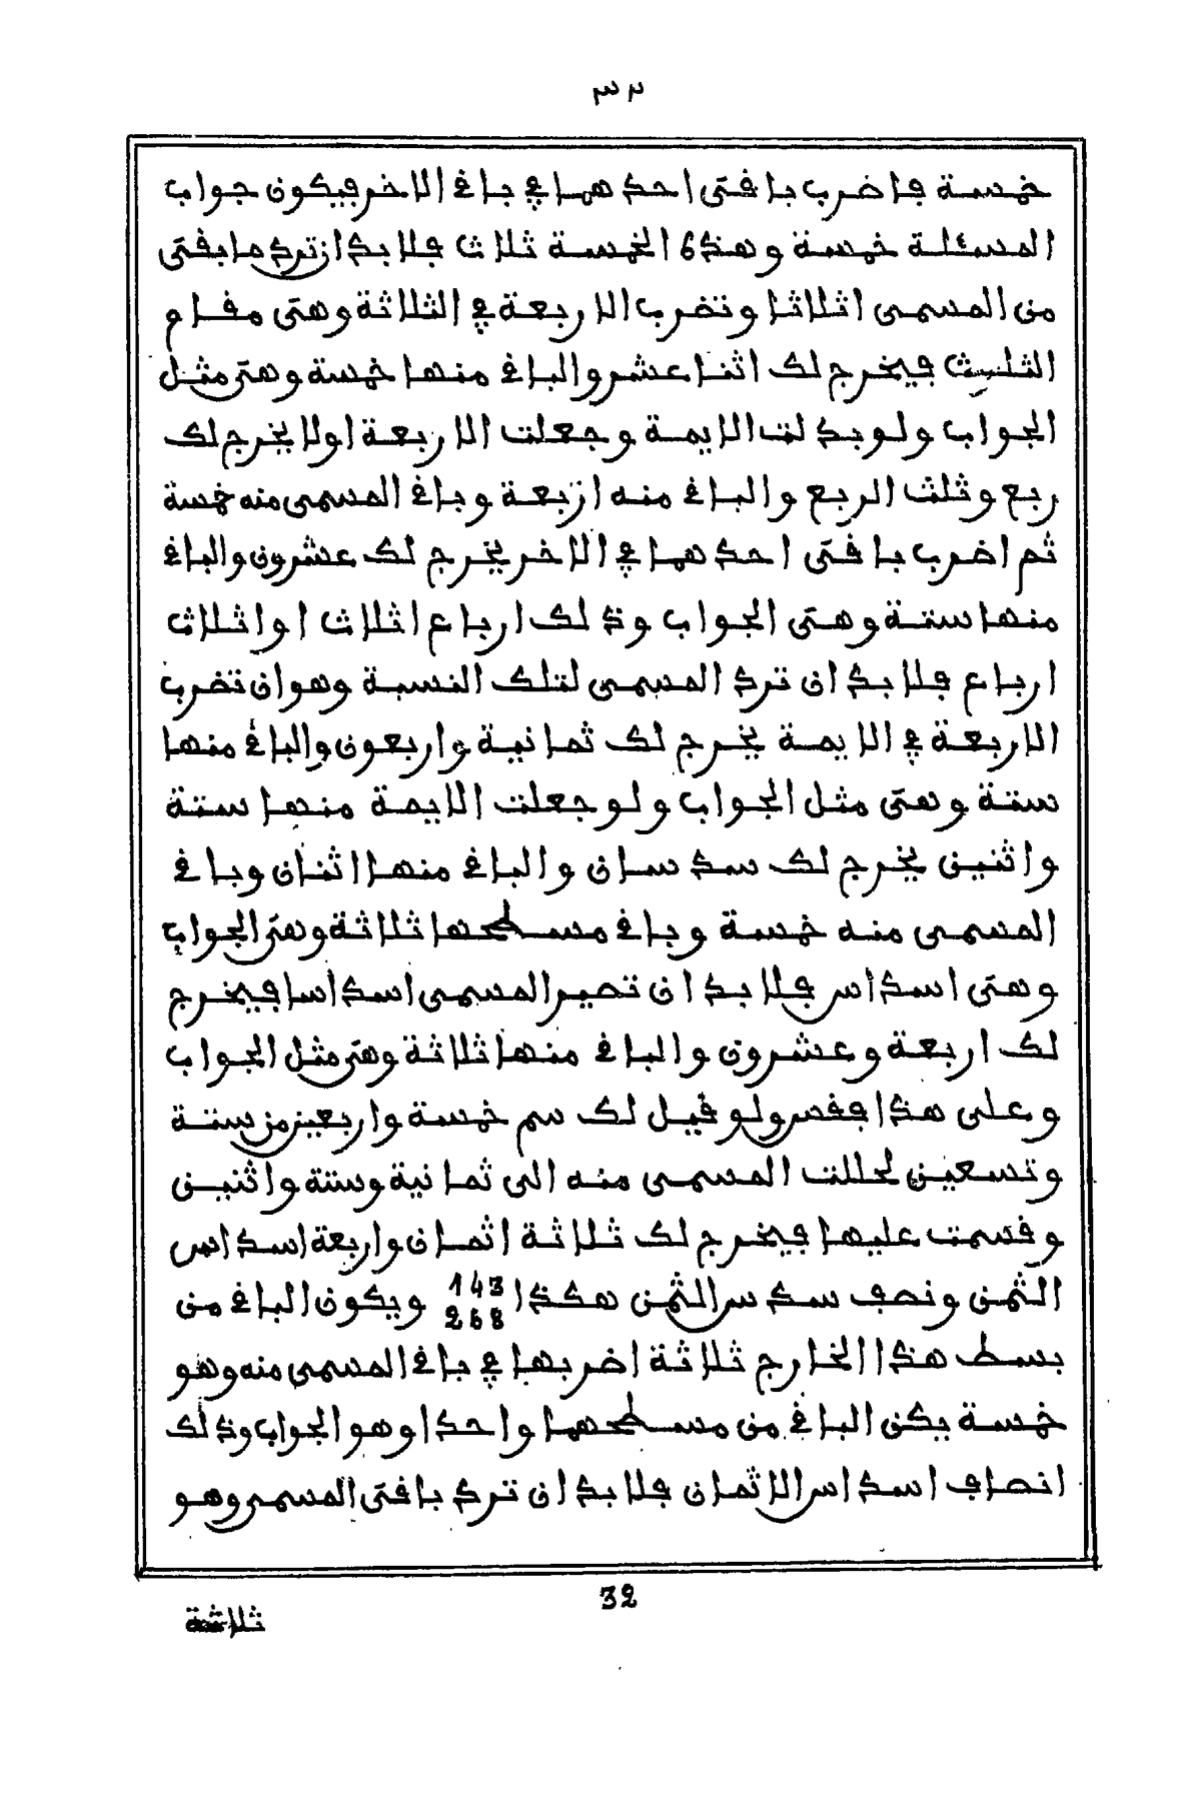 ٣٢
خمسة فاضرب باقى احدهما في باقي الاخر فيكون جواب
المسئلة خمسة وهذه الخمسة ثلاث فلا بد ان ترد ما بقى
من المسمى اثلاثا وتضرب الاربعة في الثلاثة وهى مقام
الثلث فيخرج لك اثنا عشر والباقي منها خمسة وهى مثل
الجواب ولو بدلت الايمة وجعلت الاربعة اولا يخرج لك
ربع وثلث الربع والباقي منه اربعة وباقي المسمى منه خمسة
ثم اضرب باقى احدهما في الاخر يخرج لك عشرون والباقي
منها ستة وهى الجواب وذلك ارباع اثلاث او اثلاث
ارباع فلا بد ان ترد المسمى لتلك النسبة وهو ان تضرب
الاربعة في الايمة يخرج لك ثمانية واربعون والباقي منها
ستة وهى مثل الجواب ولو جعلت الايمة منها ستة
واثنين يخرج لك سدسان والباقي منها اثنان وباقي
المسمى منه خمسة وباقي مسطحها ثلاثة وهى الجواب
وهى اسداس فلا بد ان تصير المسمى اسداسا فيخرج
لك اربعة وعشرون والباقي منها ثلاثة وهى مثل الجواب
وعلى هذا فقس ولو قيل لك سم خمسة واربعين من ستة
وتسعين لحللت المسمى منه الى ثمانية وستة واثنين
وقسمت عليها فيخرج لك ثلاثة اثمان واربعة اسداس
الثمن ونصف سدس الثمن هكذا 143 268 ويكون الباقي من
بسط هذا الخارج ثلاثة اضربها في باقي المسمى منه وهو
خمسة يكن الباقي من مسطحهما واحدا وهو الجواب وذلك
انصاف اسداس الاثمان فلا بد ان ترد باقى المسمى وهو
32
ثلاثة